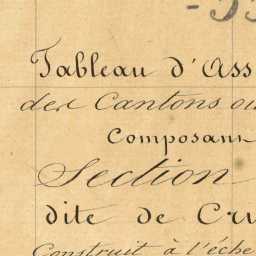 Tableau d'Ass
des Cantons ou
Composans
Section
dite de Cru
Construit à l'éche